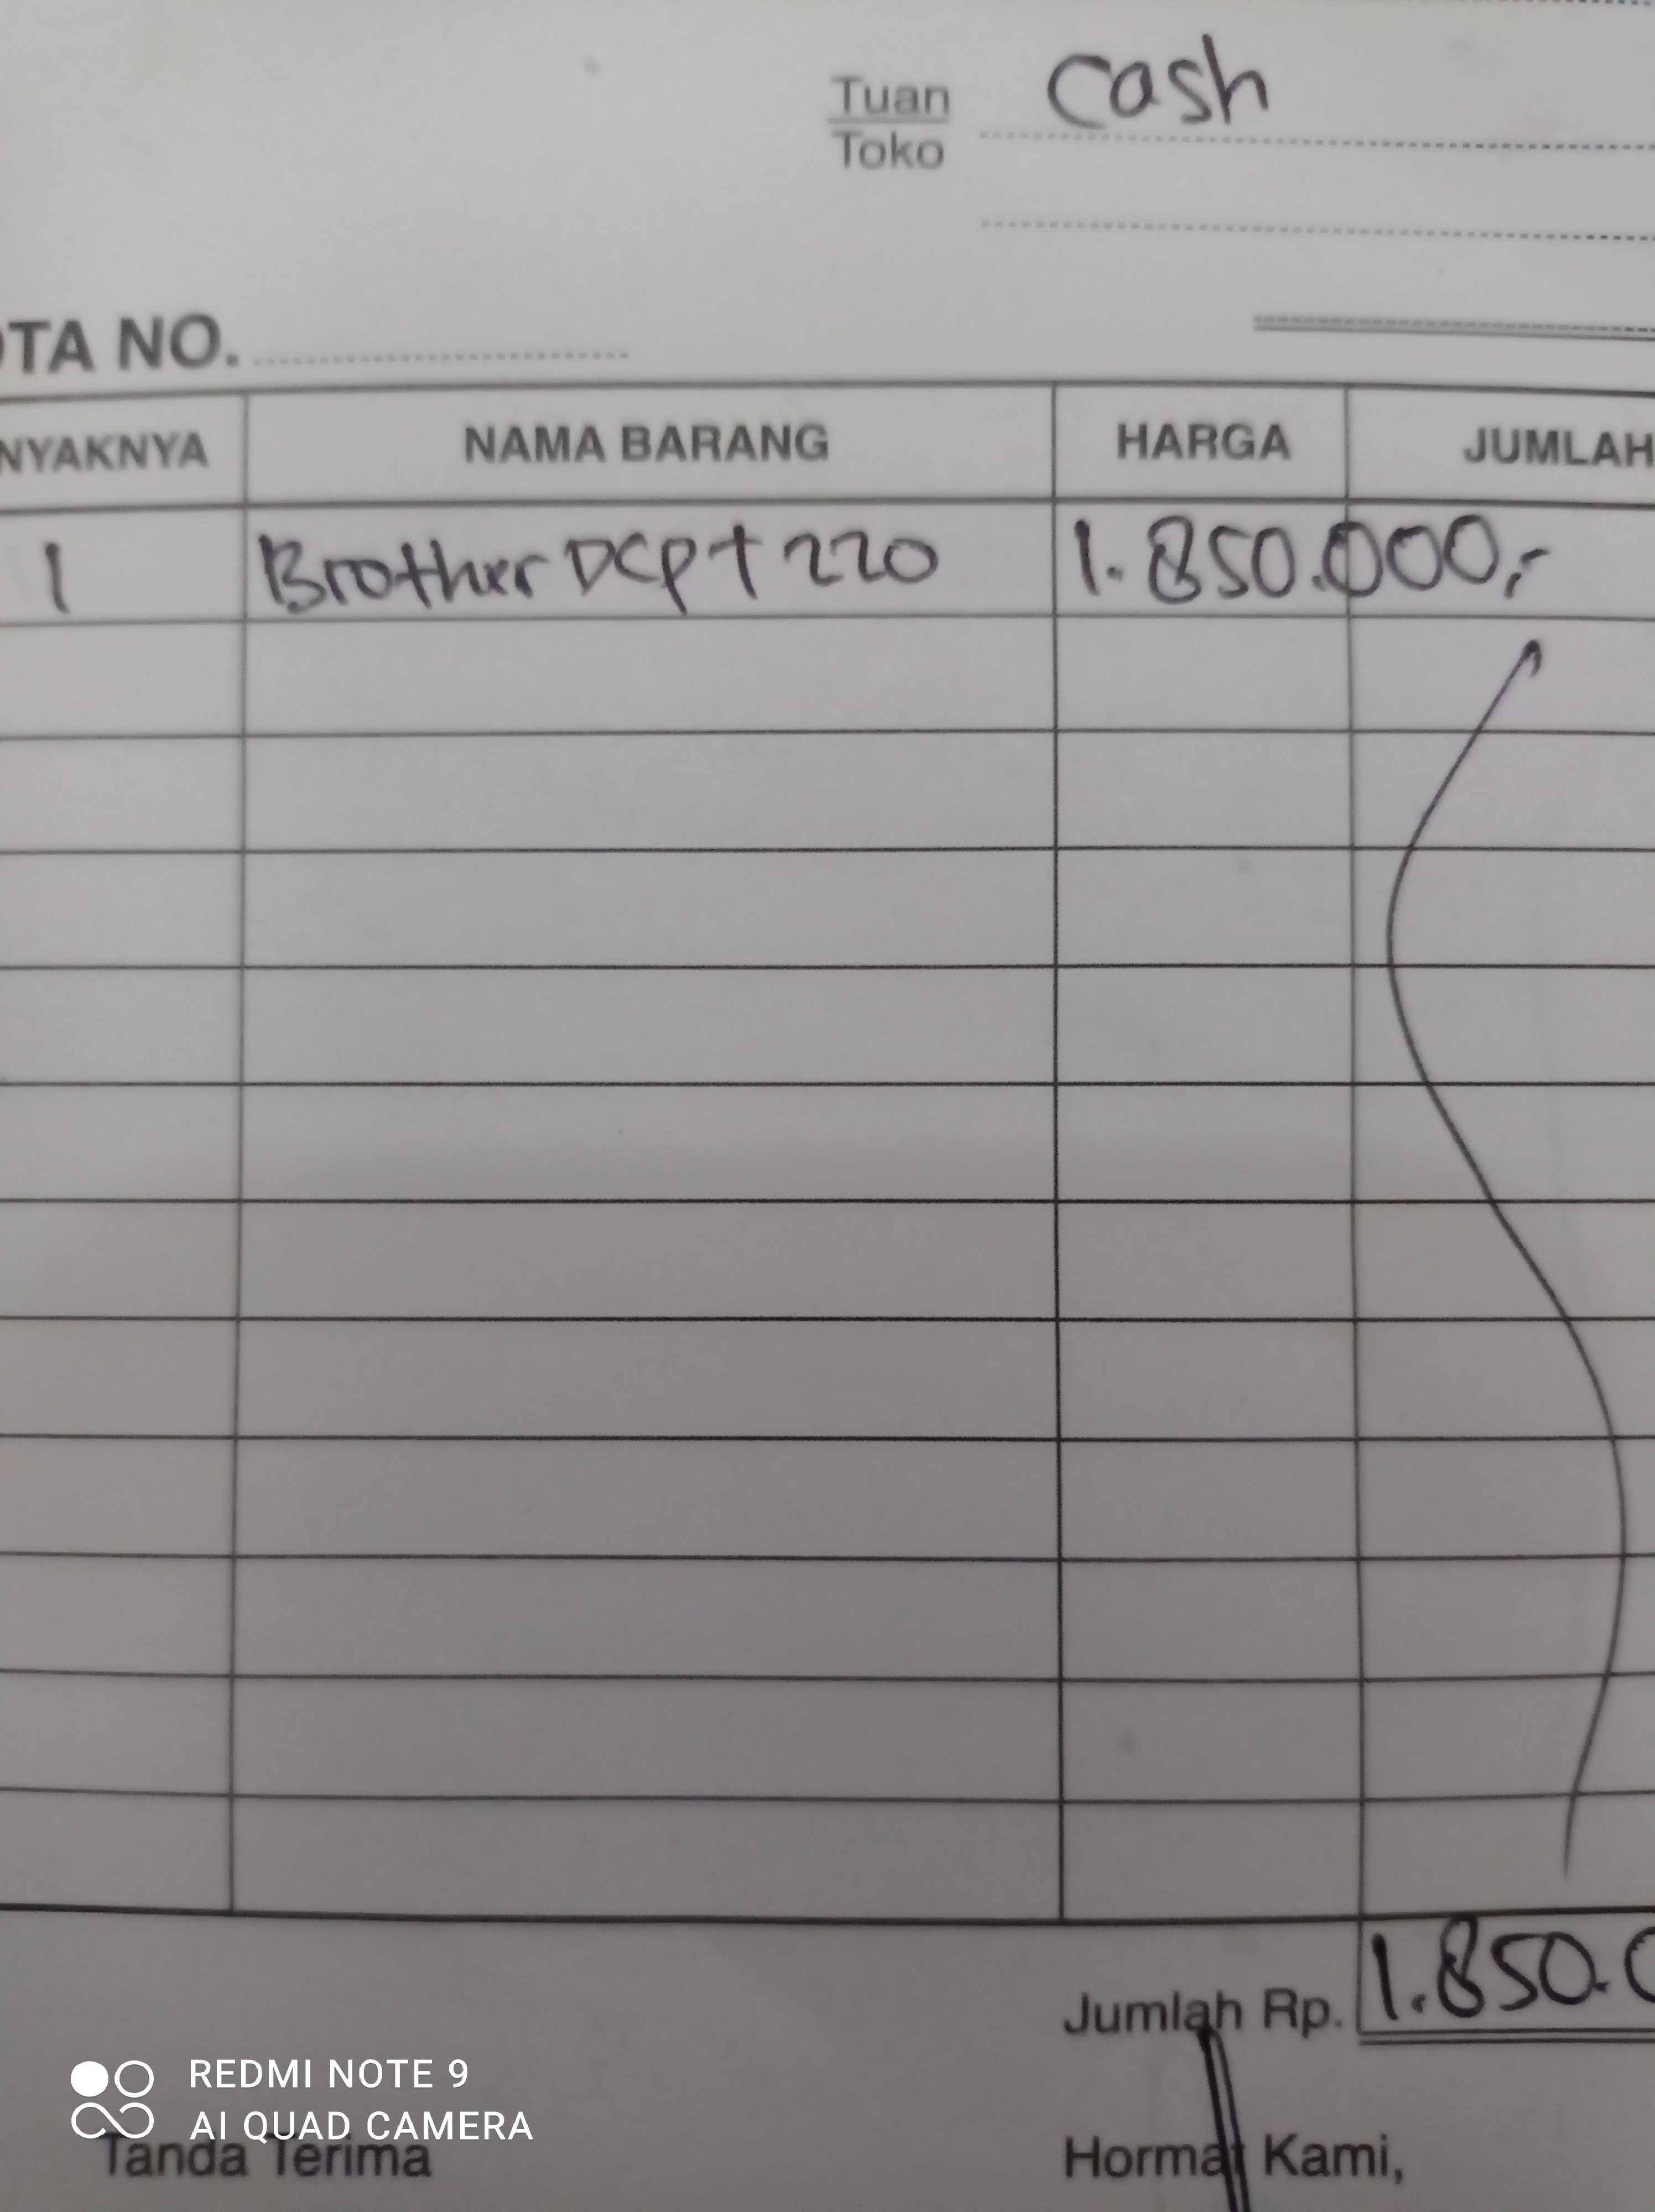 Tuan cash
Toko
OTA NO.
NYAKNYA NAMA BARANG HARGA JUMLAH
1 Brother DCP T 220 1.850.000,-
Jumlah Rp. 1.850.0
REDMI NOTE 9
AI QUAD CAMERA
Tanda Terima Hormat Kami,